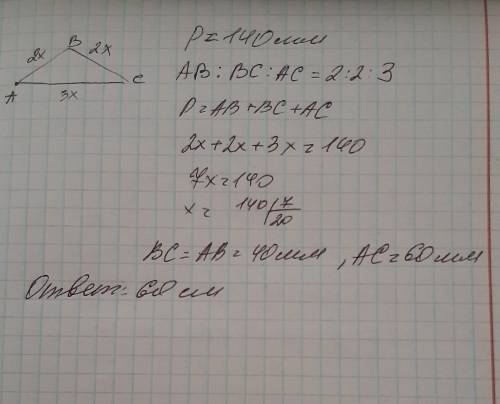 B
2x 2x
A C
3x
P=140мм
AB:BC:AC=2:2:3
P=AB+BC+AC
2x+2x+3x=140
7x=140
x= 140 7
20
BC=AB=40мм, AC=60мм
Ответ: 60см